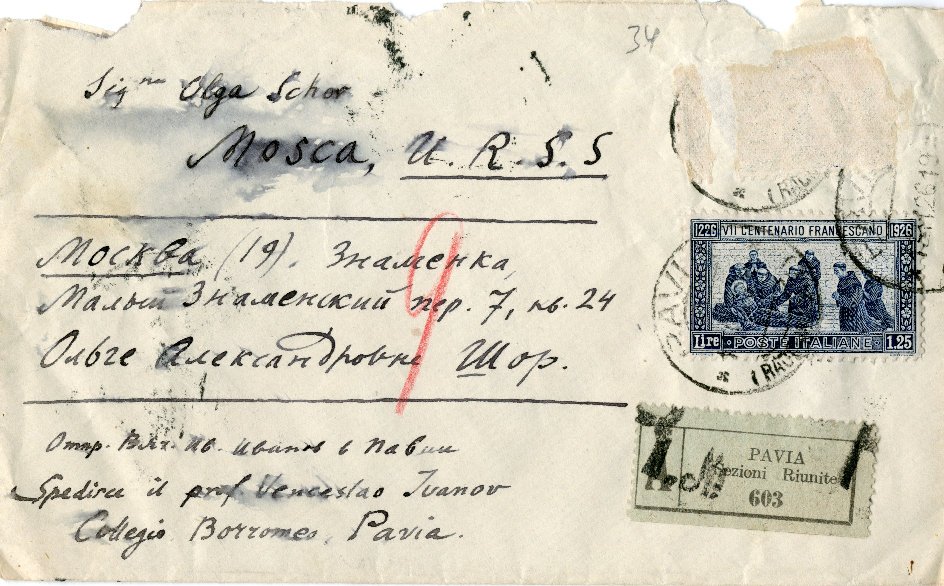 34
Sig^na Olga Schor
Mosca, U.R.S.S
Москва (19). Знаменка,
Малый Знаменский пер. 7, кв. 24
Ольге Александровне Шор.
9
Отпр. Вяч. Ив. Иванов в Павии
Spedisce il prof. Venceslao Ivanov
Collegio Borromeo, Pavia.
1226 VII CENTENARIO FRANCESCANO 1926
lire POSTE ITALIANE 1.25
PAVI
(RACC
(RACC
PAVIA
ezioni Riunite
603